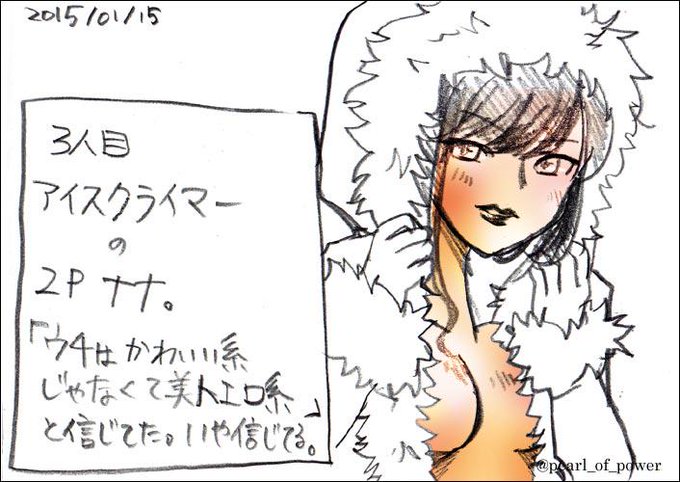 2015/01/15
3人目
アイスクライマー
の
2P ナナ。
「ウチは かわいい系
じゃなくて美人エロ系」
と信じてた。いや信じてる。
@pearl_of_power